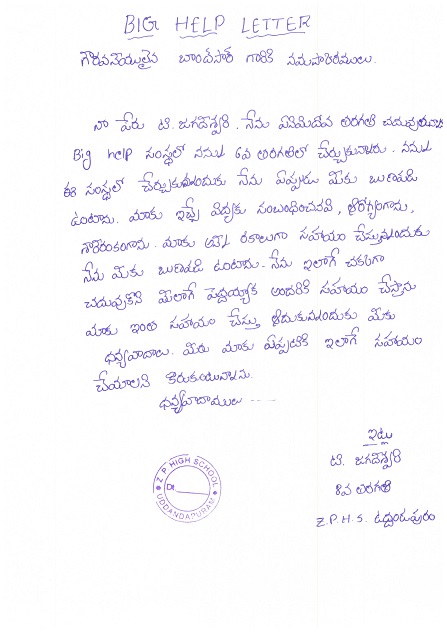 BIG HELP LETTER
గౌరవనీయులైన చాంద్‌పాషా గారికి నమస్కారములు.
నా పేరు టి. జగదీశ్వరి. నేను ఎనిమిదవ తరగతి చదువుతున్నాను
Big help సంస్థలో నన్ను 6వ తరగతిలో చేర్చుకున్నారు. నన్ను
ఈ సంస్థలో చేర్చుకున్నందుకు నేను ఎప్పుడు మీకు ఋణపడి
ఉంటాను. మాకు ఇచ్చే విద్యకు సంబంధించినవి, ఆరోగ్యంగాను,
శారీరకంగాను. మాకు అన్ని రకాలుగా సహాయం చేస్తున్నందుకు
నేను మీకు ఋణపడి ఉంటాను. నేను ఇలాగే చక్కగా
చదువుకొని మీలాగే పెద్దయ్యాక అందరికి సహాయం చేస్తాను
మాకు ఇంత సహాయం చేస్తు ఆదుకున్నందుకు మీకు
ధన్యవాదాలు. మీరు మాకు ఎప్పటికి ఇలాగే సహాయం
చేయాలని కోరుకుంటున్నాను.
ధన్యవాదాములు ----
ఇట్లు
టి. జగదీశ్వరి
8వ తరగతి
Z.P.H.S. ఉద్దండపురం
Z P HIGH SCHOOL
Dt.
UDDANDAPURAM